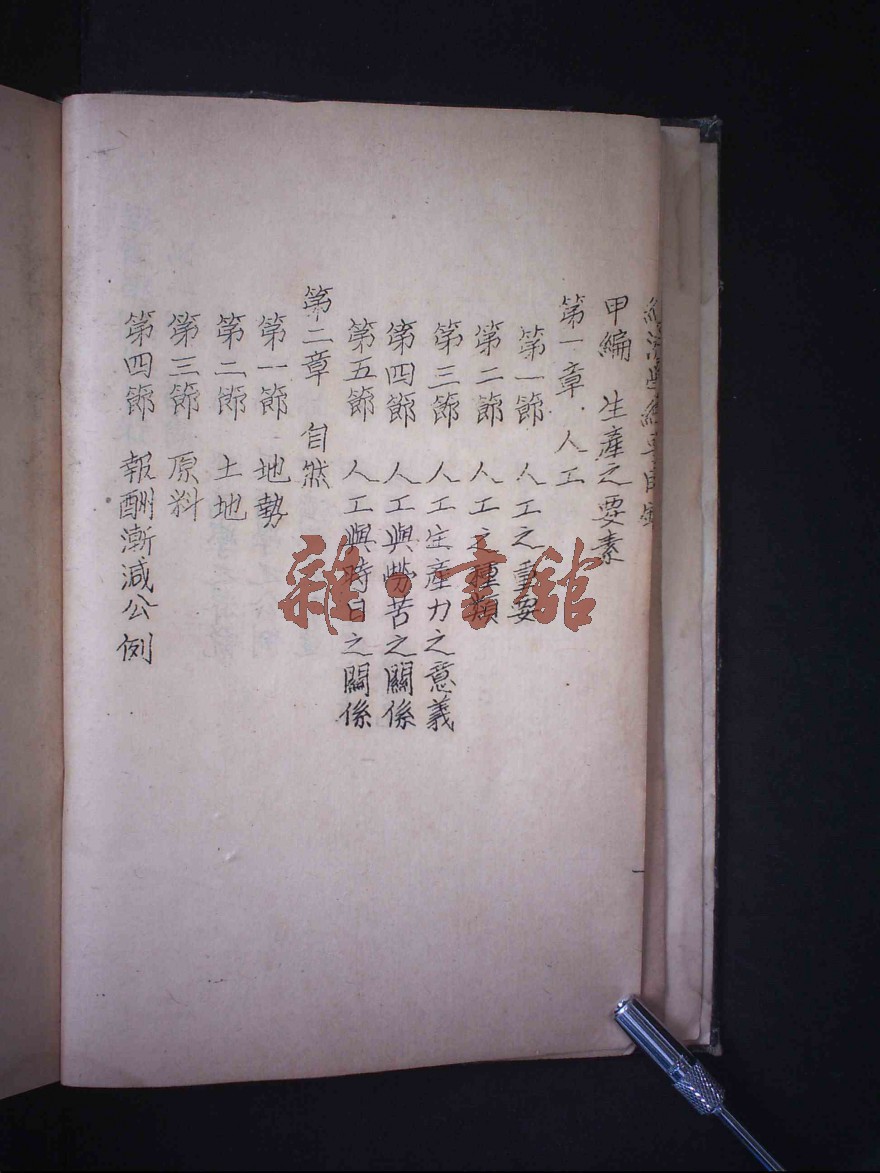 經濟學綱要目錄
甲編　生產之要素
第一章　人工
第一節　人工之重要
第二節　人工之種類
第三節　人工生產力之意義
第四節　人工與勞苦之關係
第五節　人工與時日之關係
第二章　自然
第一節　地勢
第二節　土地
第三節　原料
第四節　報酬漸減公例
雜·書館